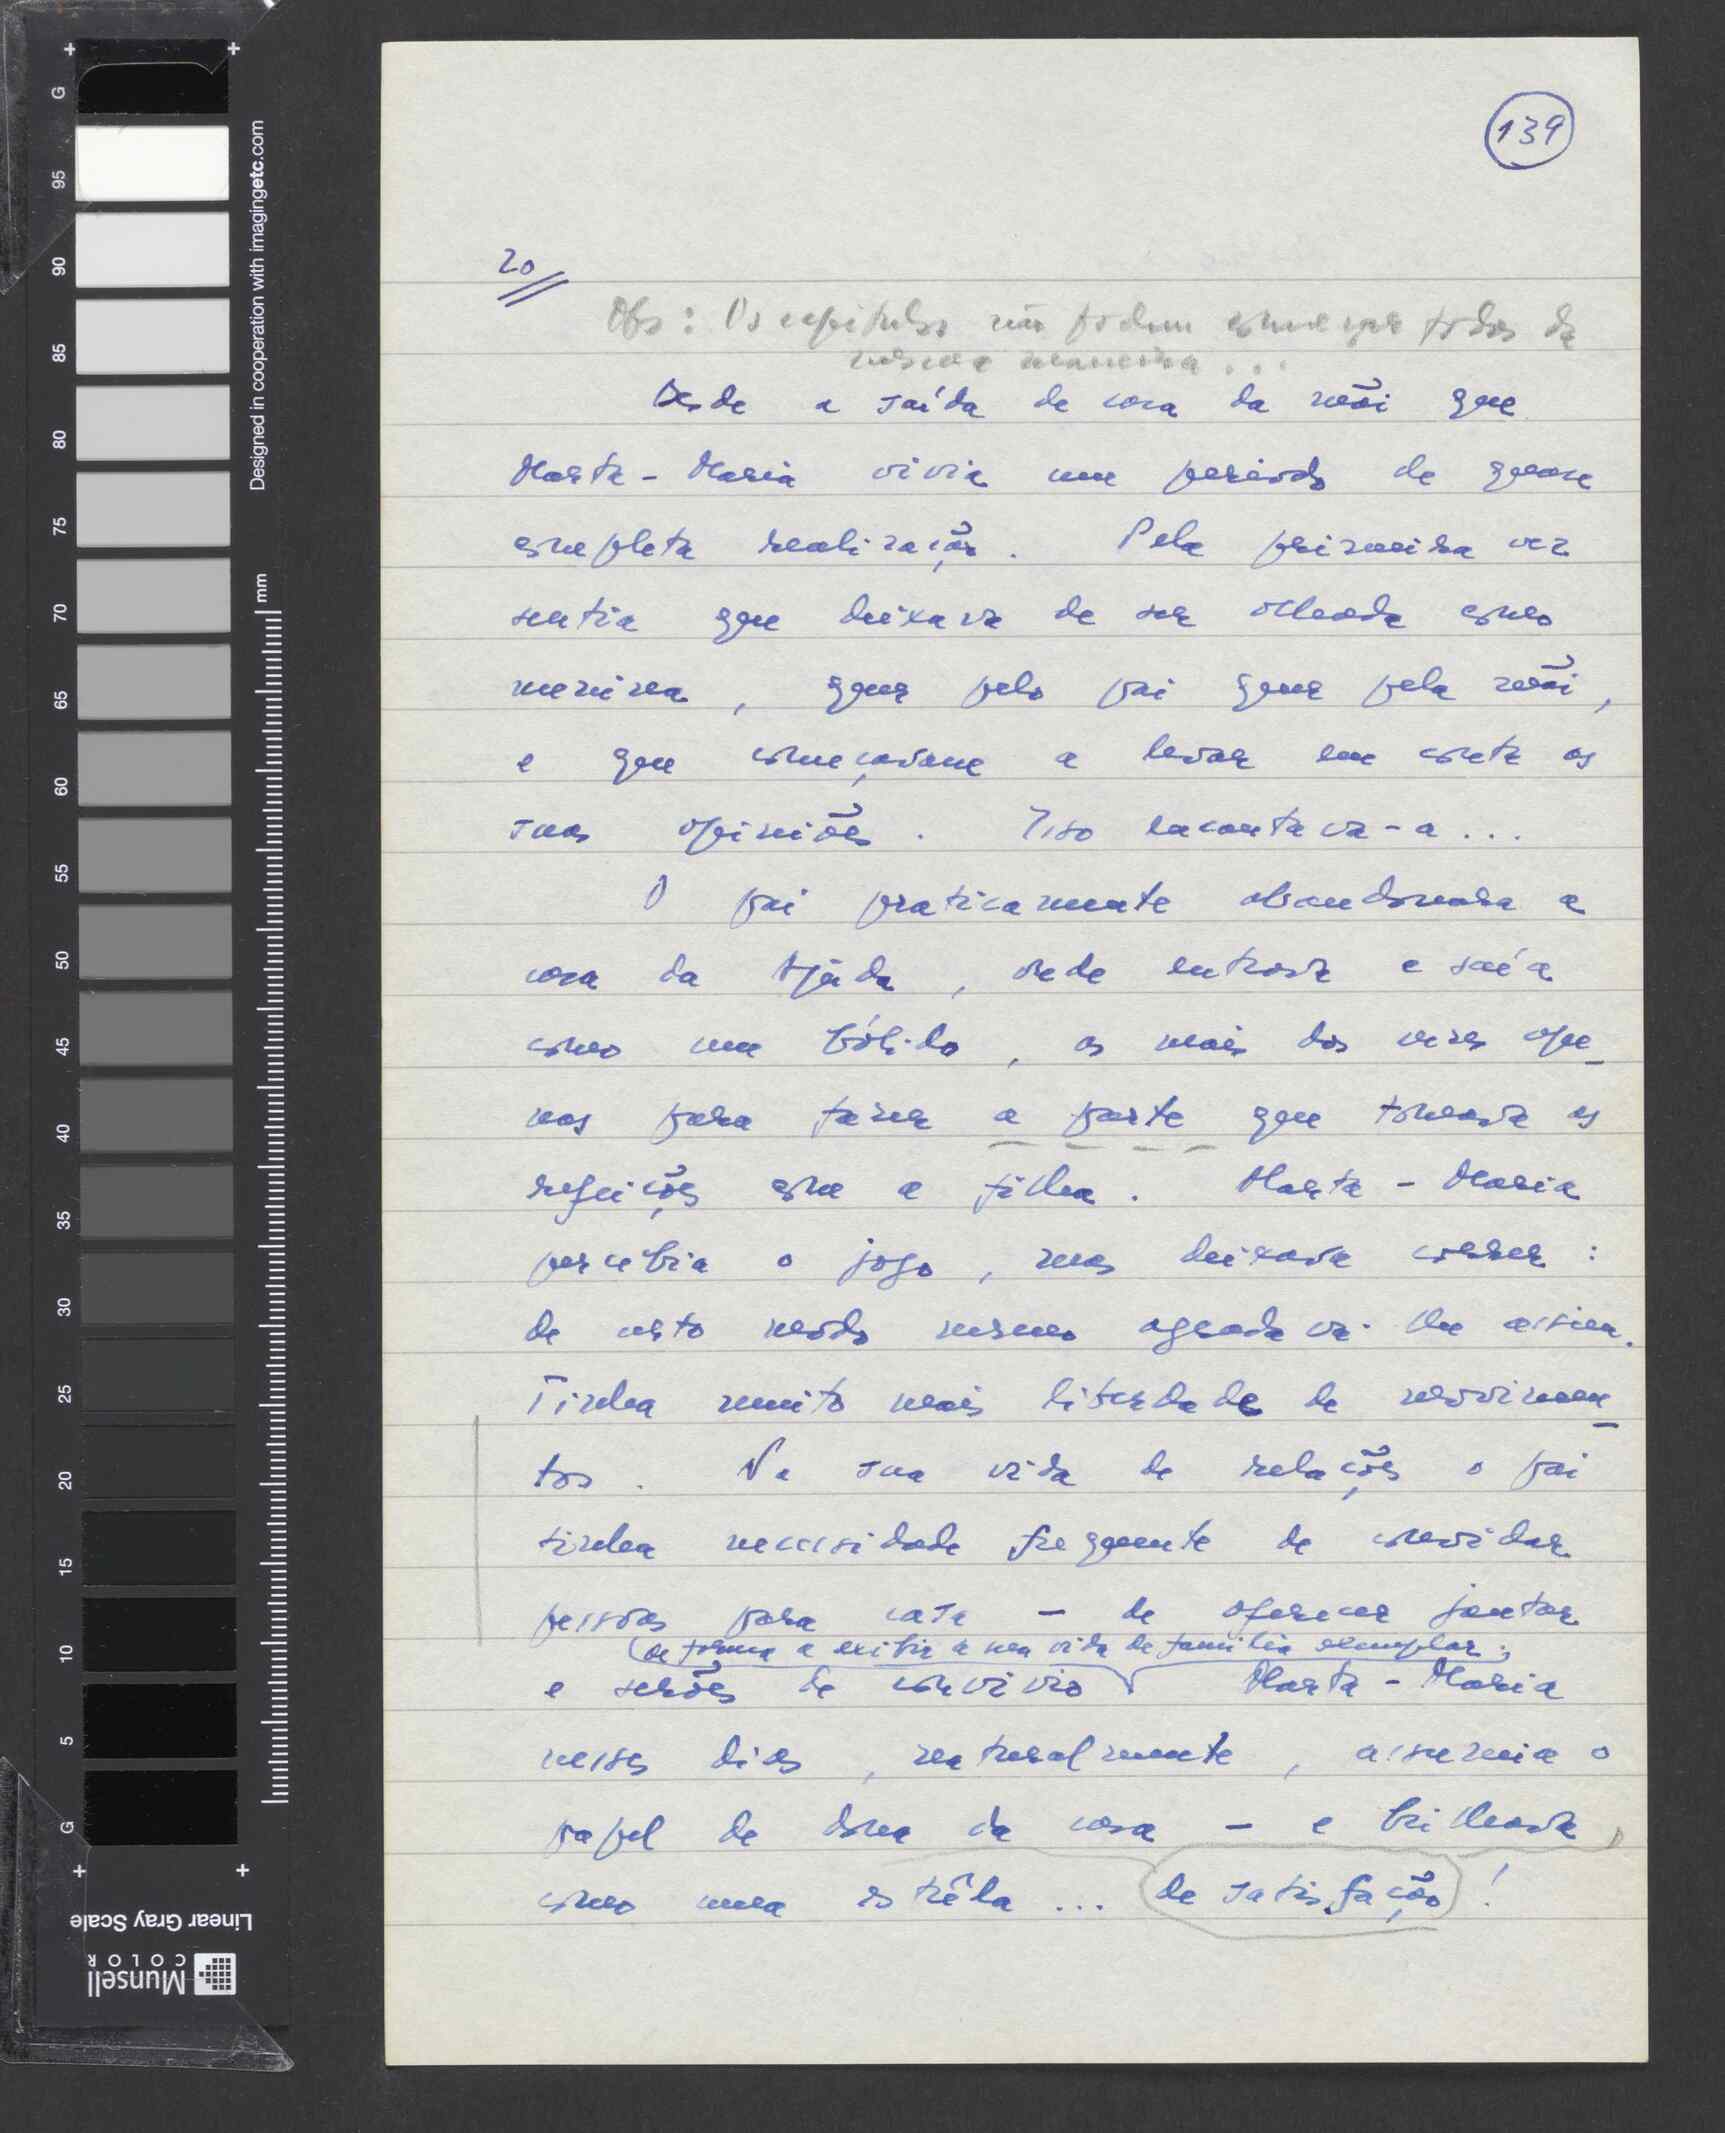 139
20
Obs: Os capítulos não podem começar todos da
mesma maneira...
Desde a saída de casa da mãi que
Marta-Maria vivia um período de quase
completa realização. Pela primeira vez
sentia que deixava de ser olhada como
menina, quer pelo pai quer pela mãi,
e que começavam a levar em conta as
suas opiniões. Isso encantava-a...
O pai praticamente abandonara a
casa da Ajuda, onde entrava e saía
como um bólido, as mais das vezes ape-
nas para fazer a parte que tomava as
refeições com a filha. Marta-Maria
percebia o jogo, mas deixava correr:
de certo modo mesmo agradava-lhe assim.
Tinha muito mais liberdade de movimen-
tos. Na sua vida de relações o pai
tinha necessidade frequente de convidar
pessoas para casa - de oferecer jantar
de forma a exibir a sua vida de família exemplar;
e serões de convívio Marta-Maria
nesses dias, naturalmente, assumia o
papel de dona da casa - e brilhava,
como uma estrêla... de satisfação!
G
95
90
85
80
75
70
65
60
55
50
45
40
35
30
25
20
15
10
5
G
Designed in cooperation with imagingetc.com
mm
Linear Gray Scale
Munsell
COLOR